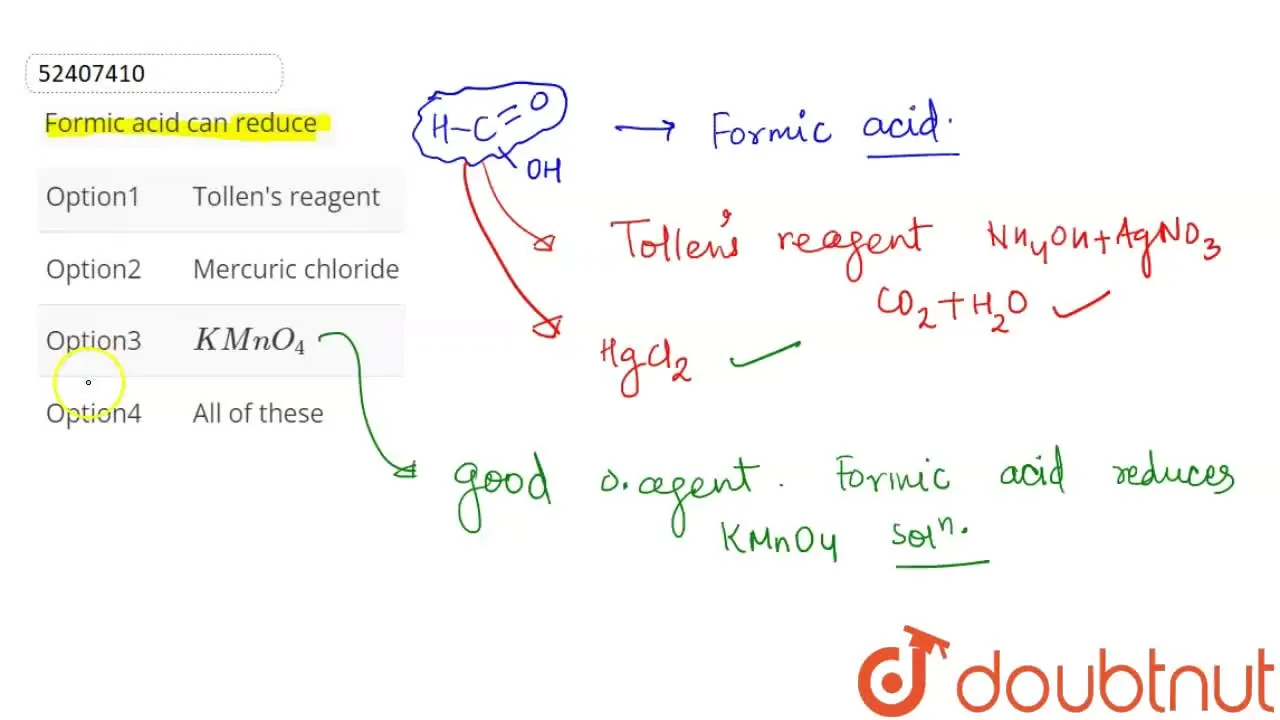 52407410
Formic acid can reduce
Option1 Tollen's reagent
Option2 Mercuric chloride
Option3 KMnO4
Option4 All of these
H-C=O
OH
→ Formic acid.
Tollen's reagent NH4OH+AgNO3
CO2+H2O ✓
HgCl2 ✓
good o.agent. Formic acid reduces
KMnO4 Solⁿ.
doubtnut